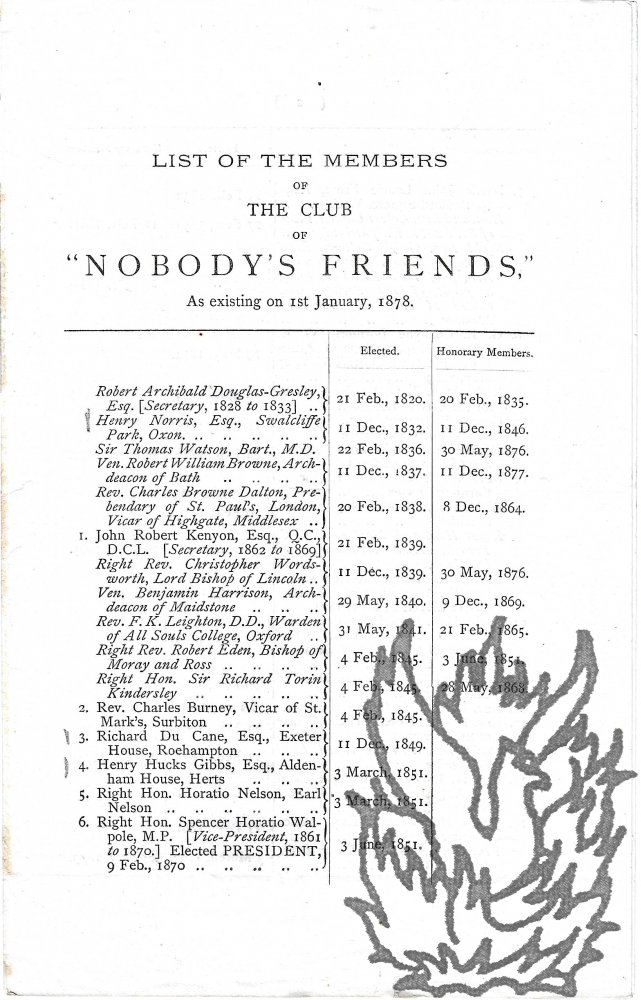 LIST OF THE MEMBERS
OF
THE CLUB
OF
"NOBODY'S FRIENDS,"
As existing on 1st January, 1878.
Elected. Honorary Members.
Robert Archibald Douglas-Gresley,
Esq. [Secretary, 1828 to 1833] .. 21 Feb., 1820. 20 Feb., 1835.
Henry Norris, Esq., Swalcliffe
Park, Oxon. .. .. .. .. .. 11 Dec., 1832. 11 Dec., 1846.
Sir Thomas Watson, Bart., M.D. 22 Feb., 1836. 30 May, 1876.
Ven. Robert William Browne, Arch-
deacon of Bath .. .. .. .. 11 Dec., 1837. 11 Dec., 1877.
Rev. Charles Browne Dalton, Pre-
bendary of St. Paul's, London, 20 Feb., 1838. 8 Dec., 1864.
Vicar of Highgate, Middlesex ..
1. John Robert Kenyon, Esq., Q.C.,
D.C.L. [Secretary, 1862 to 1869] 21 Feb., 1839.
Right Rev. Christopher Words-
worth, Lord Bishop of Lincoln .. 11 Dec., 1839. 30 May, 1876.
Ven. Benjamin Harrison, Arch-
deacon of Maidstone .. .. .. 29 May, 1840. 9 Dec., 1869.
Rev. F. K. Leighton, D.D., Warden
of All Souls College, Oxford .. 31 May, 1841. 21 Feb., 1865.
Right Rev. Robert Eden, Bishop of
Moray and Ross .. .. .. .. 4 Feb., 1845. 3 June, 1851.
Right Hon. Sir Richard Torin
Kindersley .. .. .. .. .. 4 Feb., 1845. 28 May, 1868.
2. Rev. Charles Burney, Vicar of St.
Mark's, Surbiton .. .. .. .. 4 Feb., 1845.
3. Richard Du Cane, Esq., Exeter
House, Roehampton .. .. .. 11 Dec., 1849.
4. Henry Hucks Gibbs, Esq., Alden-
ham House, Herts .. .. .. 3 March, 1851.
5. Right Hon. Horatio Nelson, Earl
Nelson .. .. .. .. .. .. 3 March, 1851.
6. Right Hon. Spencer Horatio Wal-
pole, M.P. [Vice-President, 1861
to 1870.] Elected PRESIDENT, 3 June, 1851.
9 Feb., 1870 .. .. .. .. ..